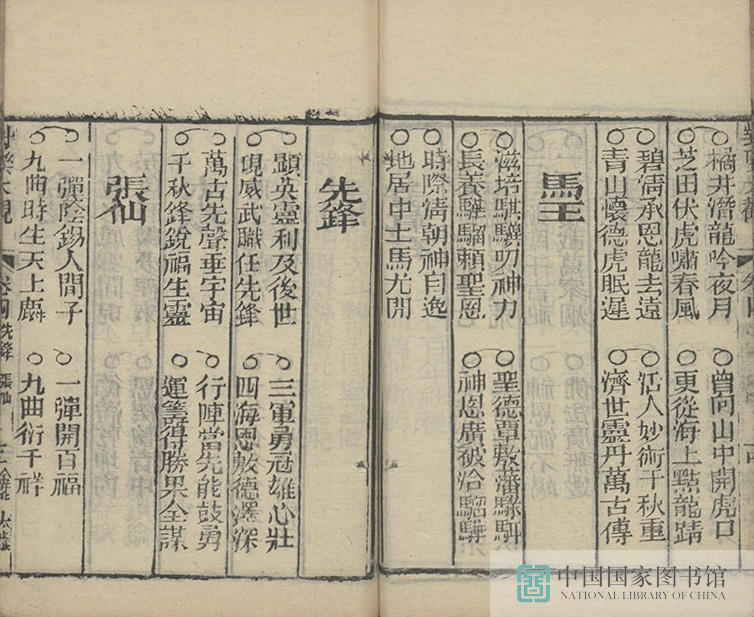 橘井潛龍吟夜月
曾向山中開虎口
芝田伏虎嘯春風
更從海上點龍睛
碧承恩龍去遠
活人妙術千秋重
青山懷德虎眠遲
濟世靈丹萬古傳
馬王
滋培騏驥叨神力
聖德覃敷騄駬
長養驊騮賴聖恩
神恩廣被洽
時際清朝神自逸
地居中土馬尤閒
先鋒
顯英靈利及後世
三軍勇冠雄心壯
現威武職任先鋒
四海恩敷德澤深
萬古先聲垂宇宙
行陣當先能鼓勇
千秋鋒銳福生靈
運籌得勝果全謀
張仙
一彈陰錫人間子
一彈開百福
九曲時生天上麟
九曲衍千祥
大觀 卷四 先鋒 張仙
中国国家图书馆
NATIONAL LIBRARY OF CHINA